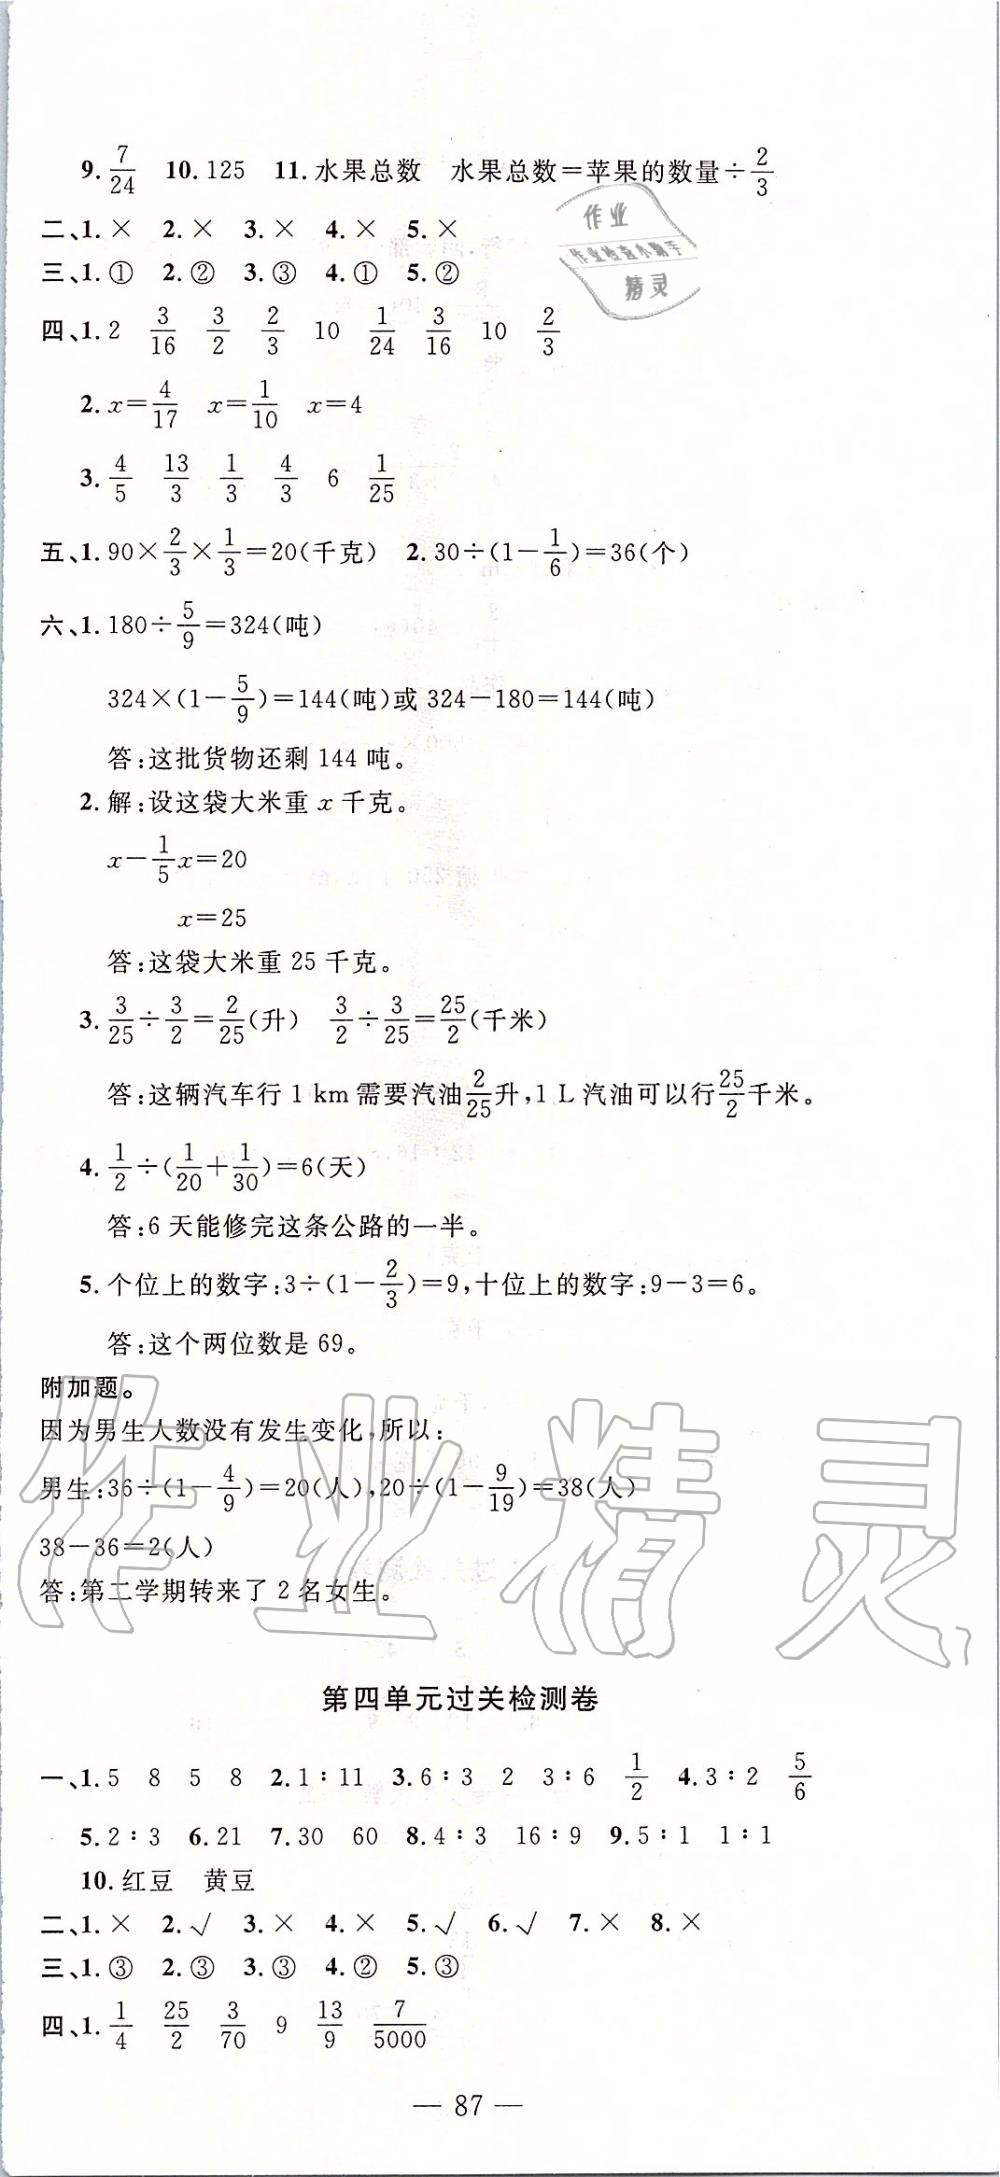 9. 7/24 10. 125 11. 水果总数 水果总数=苹果的数量÷2/3
作业
作业检查小助手
精灵
二、1. × 2. × 3. × 4. × 5. ×
三、1. ① 2. ② 3. ③ 4. ① 5. ②
四、1. 2 3/16 3/2 2/3 10 1/24 3/16 10 2/3
2. x=4/17 x=1/10 x=4
3. 4/5 13/3 1/3 4/3 6 1/25
五、1. 90×2/3×1/3=20(千克) 2. 30÷(1-1/6)=36(个)
六、1. 180÷5/9=324(吨)
324×(1-5/9)=144(吨)或 324-180=144(吨)
答:这批货物还剩 144 吨。
2. 解:设这袋大米重 x 千克。
x-1/5x=20
x=25
答:这袋大米重 25 千克。
3. 3/25÷3/2=2/25(升) 3/2÷3/25=25/2(千米)
答:这辆汽车行 1 km 需要汽油2/25升,1 L 汽油可以行25/2千米。
4. 1/2÷(1/20+1/30)=6(天)
答:6 天能修完这条公路的一半。
5. 个位上的数字:3÷(1-2/3)=9,十位上的数字:9-3=6。
答:这个两位数是 69。
附加题。
因为男生人数没有发生变化,所以:
男生:36÷(1-4/9)=20(人),20÷(1-9/19)=38(人)
38-36=2(人)
答:第二学期转来了 2 名女生。
作业精灵
第四单元过关检测卷
一、1. 5 8 5 8 2. 1∶11 3. 6∶3 2 3∶6 1/2 4. 3∶2 5/6
5. 2∶3 6. 21 7. 30 60 8. 4∶3 16∶9 9. 5∶1 1∶1
10. 红豆 黄豆
二、1. × 2. √ 3. × 4. × 5. √ 6. √ 7. × 8. ×
三、1. ③ 2. ③ 3. ③ 4. ② 5. ③
四、1. 1/4 25/2 3/70 9 13/9 7/5000
— 87 —